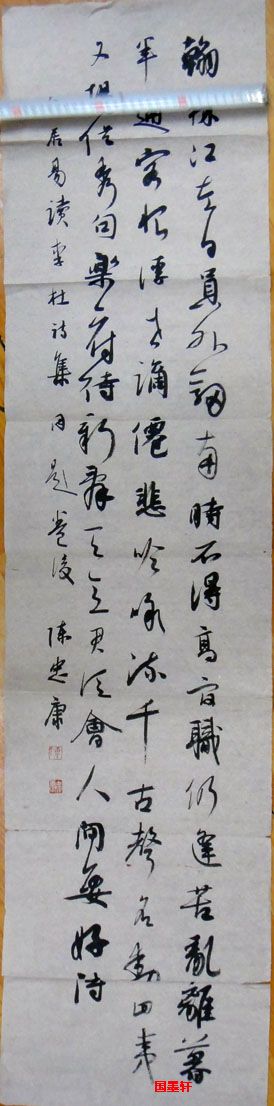 翰林江左日員外劍南時不得高官職仍逢苦亂離暮
年逋客恨浮世謫僊悲吟咏流千古聲名動四夷
文場供秀句樂府待新辭天意君須會人間要好詩
居易讀李杜詩集因題卷後 陳忠康
国墨轩